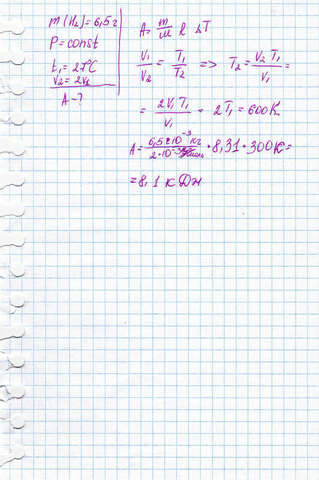 m(H₂)=6,5г
P=const
t₁=27°C
V₂=2V₁
A-?
A= m/μ R ΔT
V₁/V₂ = T₁/T₂ => T₂= V₂T₁/V₁ =
= 2V₁T₁/V₁ = 2T₁=600K
A= 6,5*10⁻³кг/2*10⁻³кг/моль *8,31*300K=
=8,1 кДж